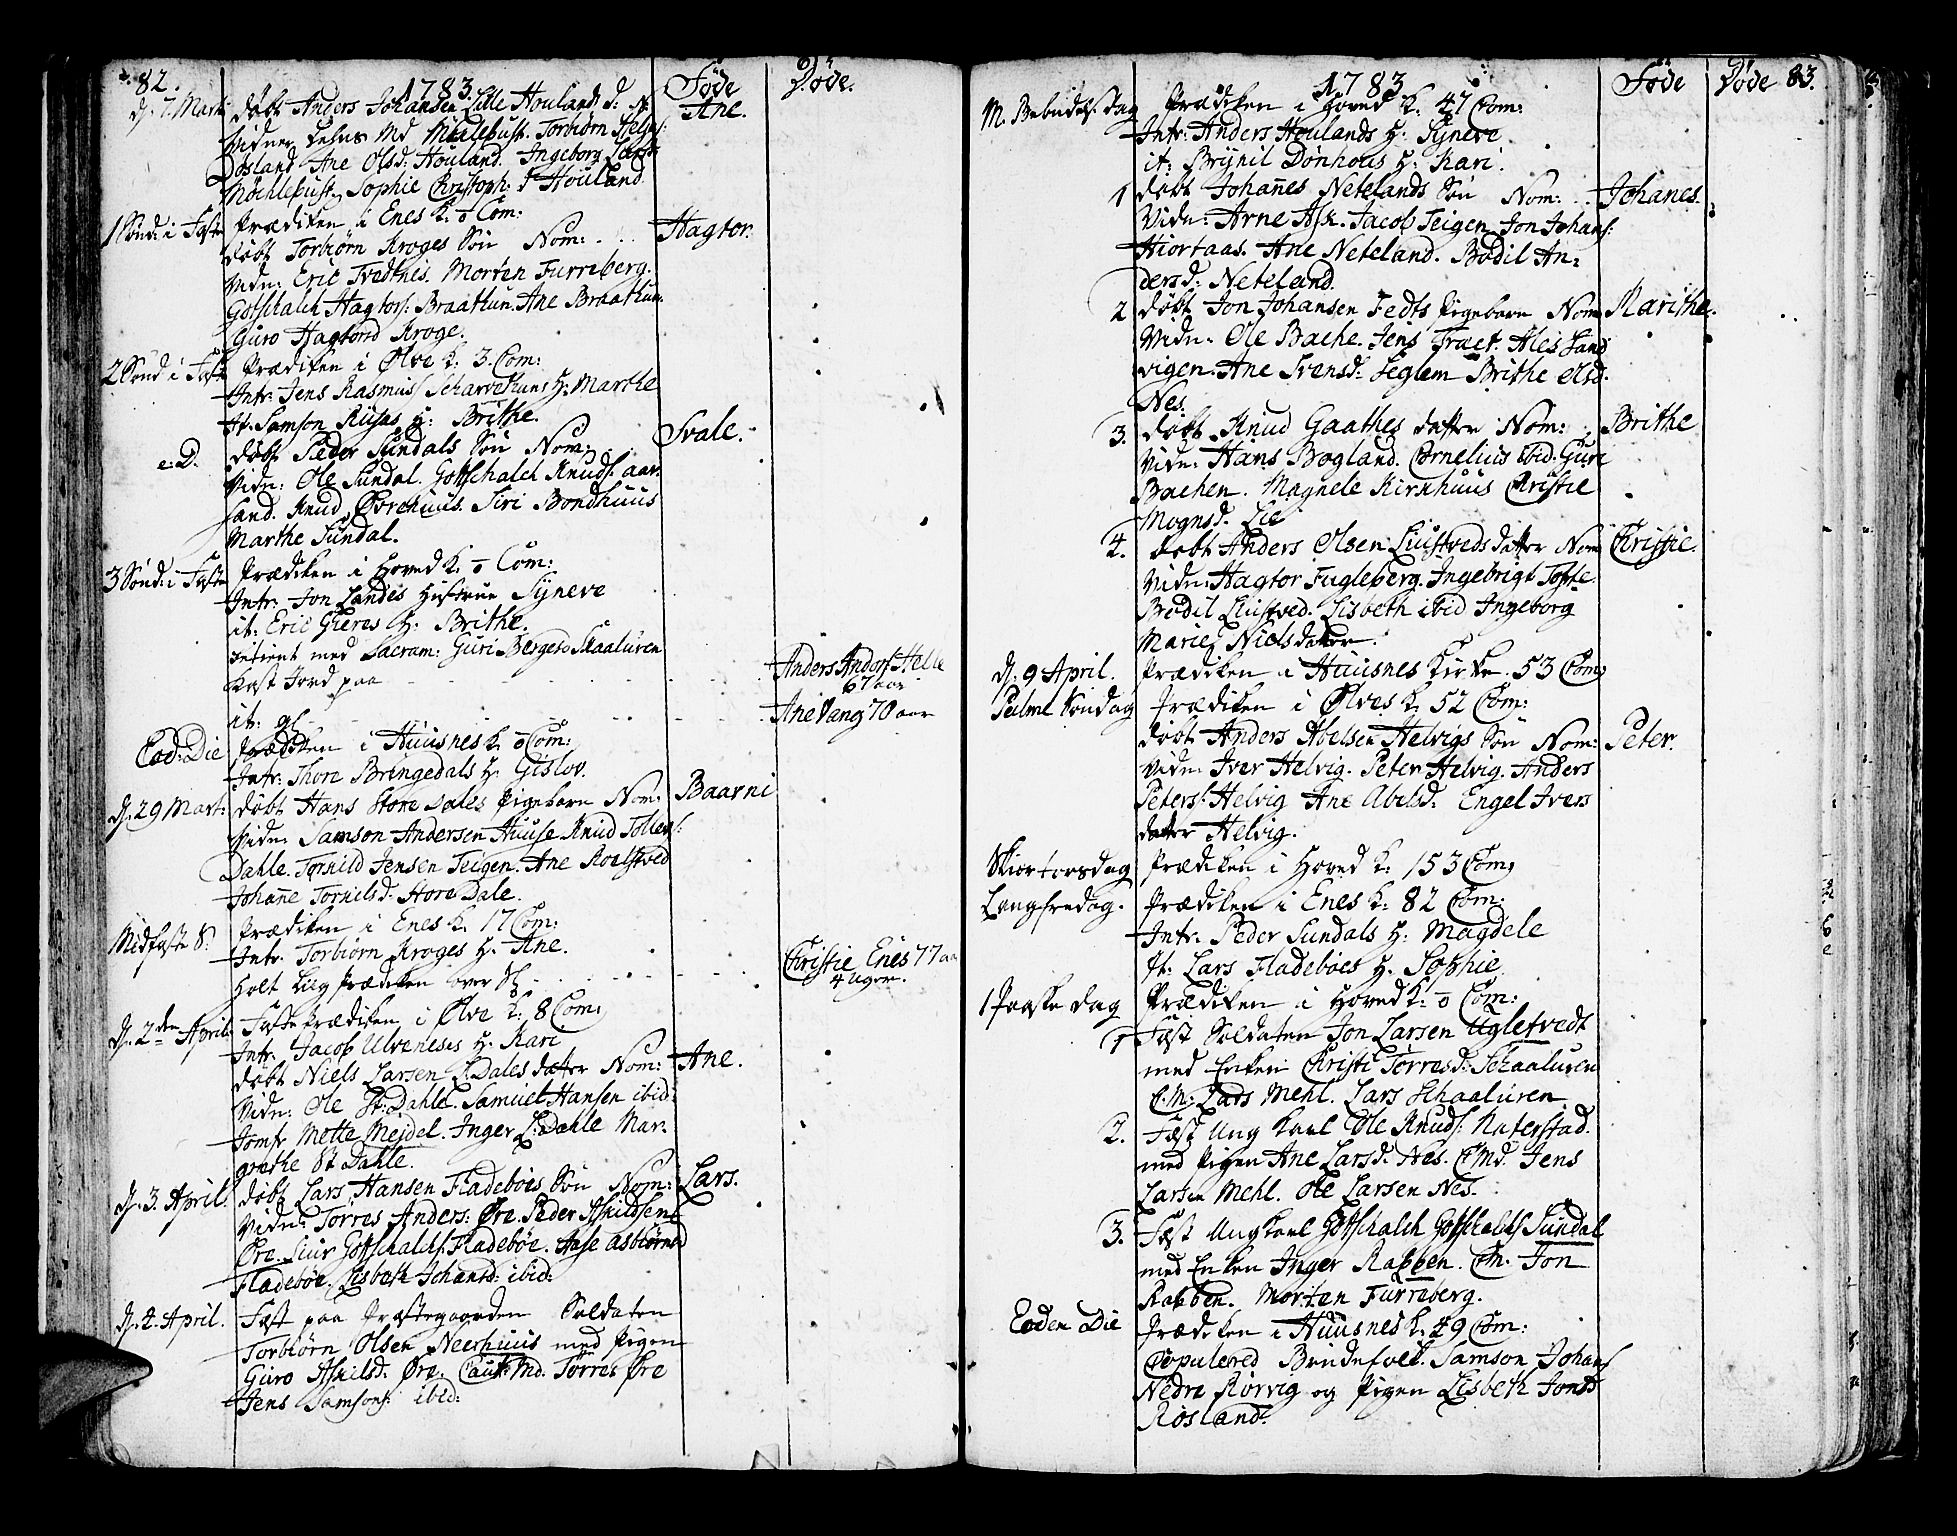 82.
1783.
Føde
Døde.
d. 7. Mart: døbt Anders Johansen Lille Houlands d: N: Ane.
Vidner Md Møchlebust. Torbiørn
Døsland Ane Olsd: Houland. Ingeborg Larsd
Møchlebust, Sophie Christoph: Houland.
1 Sønd: i Faste Prædiken i Enes K. 0 Com:
døbt Torbiørn Kroges Søn Nom: Hagtor.
Vidn: Eric Tvedtnes. Morten Furreberg.
Gotschalch Hagtors: Braathun. Ane Braathun.
Guro Hagtord Kroge.
2 Sønd i Faste Prædiken i Ølve K: 3. Com:
Intr. Jens Rasmus: Scharvetuns H: Marthe
It. Samson Rusas H: Brithe.
e: D. døbt Peder Sundals Søn Nom: Svale.
Vidn: Ole Sundal. Gotschalch Knuds: aar:
sand. Knud Øvrehuus. Siri Bondhuus
Marthe Sundal.
3 Sønd: i Faste Prædiken i Hoved K: 0 Com:
Intr: Jon Landes Hustrue Syneve
it: Eric Gieres H: Brithe.
betient med Sacram: Guri Bergets Skaaluren
Kast Jord paa - - - Anders Andors: Helle
67 aar
it: gl - - - Ane Vang 70 aar
Eod: Die Prædiken i Huusnes K. 0 Com:
Intr: Thore Bringedals H: Gislov.
d. 29 Mart: døbt Hans Store Dales Pigebarn Nom: Baarni
Vidn: Samson Andersen Huuse Knud Tollevs:
Dahle. Tornild Jensen Teigen. Ane Roaldsved
Johane Tornilsd: Store Dale.
Midfaste S: Prædiken i Enes K. 17 Com:
Intr. Torbiørn Kroges H: Ane.
Holt Liig Prædiken over - - - Christie Enes 77 aar
4 Uger.
d. 2den April: Faste Prædiken i Ølve K: 8 Com:
Intr. Jacob Ulveneses H: Kari
døbt Niels Larsen L: Dales datter Nom: Ane.
Vidn: Ole St: Dahle. Samuel Hansen ibid:
Jomfr Mette Mejdel. Inger L: Dahle Mar-
grethe St Dahle.
d. 3. April. døbt Lars Hansen Fladebøes Søn Nom: Lars.
Vidn: Torres Anders: Øre. Peder Askildsen
Øre. Siur Gotschalchs: Fladebøe. Aase Asbiørnsd
Fladebøe. Lisbeth Johansd: ibid:
d. 4. April. Fæst paa Præstegaarden Soldaten
Torbiørn Olsen Neerhuus med Pigen
Guro Askilsd: Øre. Caut: Md. Torres Øre
Jens Samsons: ibid:
1783
Føde
Døde 83.
M. Bebudels: Dag Prædiken i Hoved K. 47 Com:
Intr: Anders Houlands H: Syneve
it: Brynil Dønhous H: Kari.
1 døbt Johanes Netelands Søn Nom: Johanes.
Vidn: Arne Ask. Jacob Teigen. Jon Johans:
Hiortaas. Ane Neteland. Bodil An-
dersd: Neteland.
2 døbt Jon Johansen Fedts Pigebarn Nom Marithe.
Vidn: Ole Bache. Jens Traet. Ales Sand
vigen. Ane Svensd: Seglem Brithe Olsd.
Nes.
3. døbt Knud Gaathes datter Nom: Brithe
Vidn: Hans Bogland. Cornelius ibid: Guri
Bachen. Magnele Kirkhuus Christie
Mognsd: Lie
4. døbt Anders Olsen Liustveds datter Nom Christie.
Vidn: Hagtor Fugleberg. Ingebrigt Tofte.
Bodil Liustved. Lisbeth ibid Ingeborg
Marie Nielsdatter:
d. 9 April. Prædiken i Huusnes Kirke. 53 Com:
Palme Søndag Prædiken i Ølves K. 52 Com:
døbt Anders Abelsen Helvigs Søn Nom: Peter.
Vidn: Iver Helvig. Peter Helvig. Anders
Peters: Helvig Ane Abelsd: Engel Ivers
datter Helvig.
Skiertorsdag Prædiken i Hoved K: 153 Com:
Langfredag. Prædiken i Enes K: 82 Com:
Intr. Peder Sundals H: Magdele
It: Lars Fladebøes H. Sophie.
1 Paaske dag Prædiken i Hoved K: 0 Com:
1 Fæst Soldaten Jon Larsen Ugletvedt
med Enken Christi Torresd: Schaaluren
C. M: Lars Mehl. Lars Schaaluren.
2. Fæst Ung Karl Ole Knuds: Naterstad.
med Pigen Ane Larsd: Nes. C Md. Jens
Larsen Mehl. Ole Larsen Nes.
3. Fæst Ungkarl Gotschalch Gotschalchs: Sundal
med Enken Inger Rabben. CM. Jon
Rabben. Morten Furreberg.
Eoden Die Prædiken i Huusnes K. 49 Com:
Copulered Brudefolk. Samson Johans:
Nedre Rørvig og Pigen Lisbeth Jonsd
Røsland.